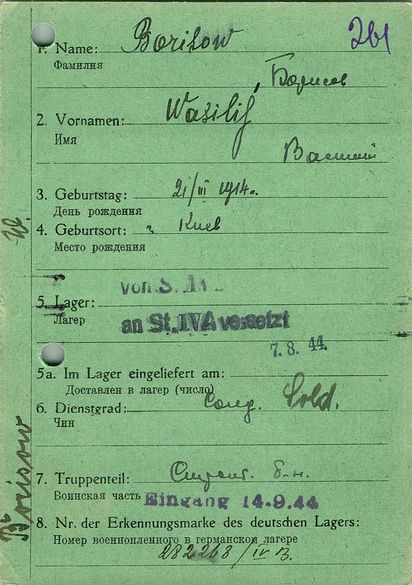 261
1. Name: Borisow
Фамилия
Борисов
2. Vornamen: Wasilij
Имя
Василий
3. Geburtstag: 21/III 1914.
День рождения
4. Geburtsort: г. Киев
Место рождения
von S. IV
5. Lager:
Лагер
an St. IVA versetzt
7. 8. 44.
5a. Im Lager eingeliefert am:
Доставлен в лагер (число)
6. Dienstgrad: Солд. Sold.
Чин
7. Truppenteil: б-н.
Воинская часть
Eingang 14.9.44
8. Nr. der Erkennungsmarke des deutschen Lagers:
Номер военнопленного в германском лагере
282268/IV B.
Borisow